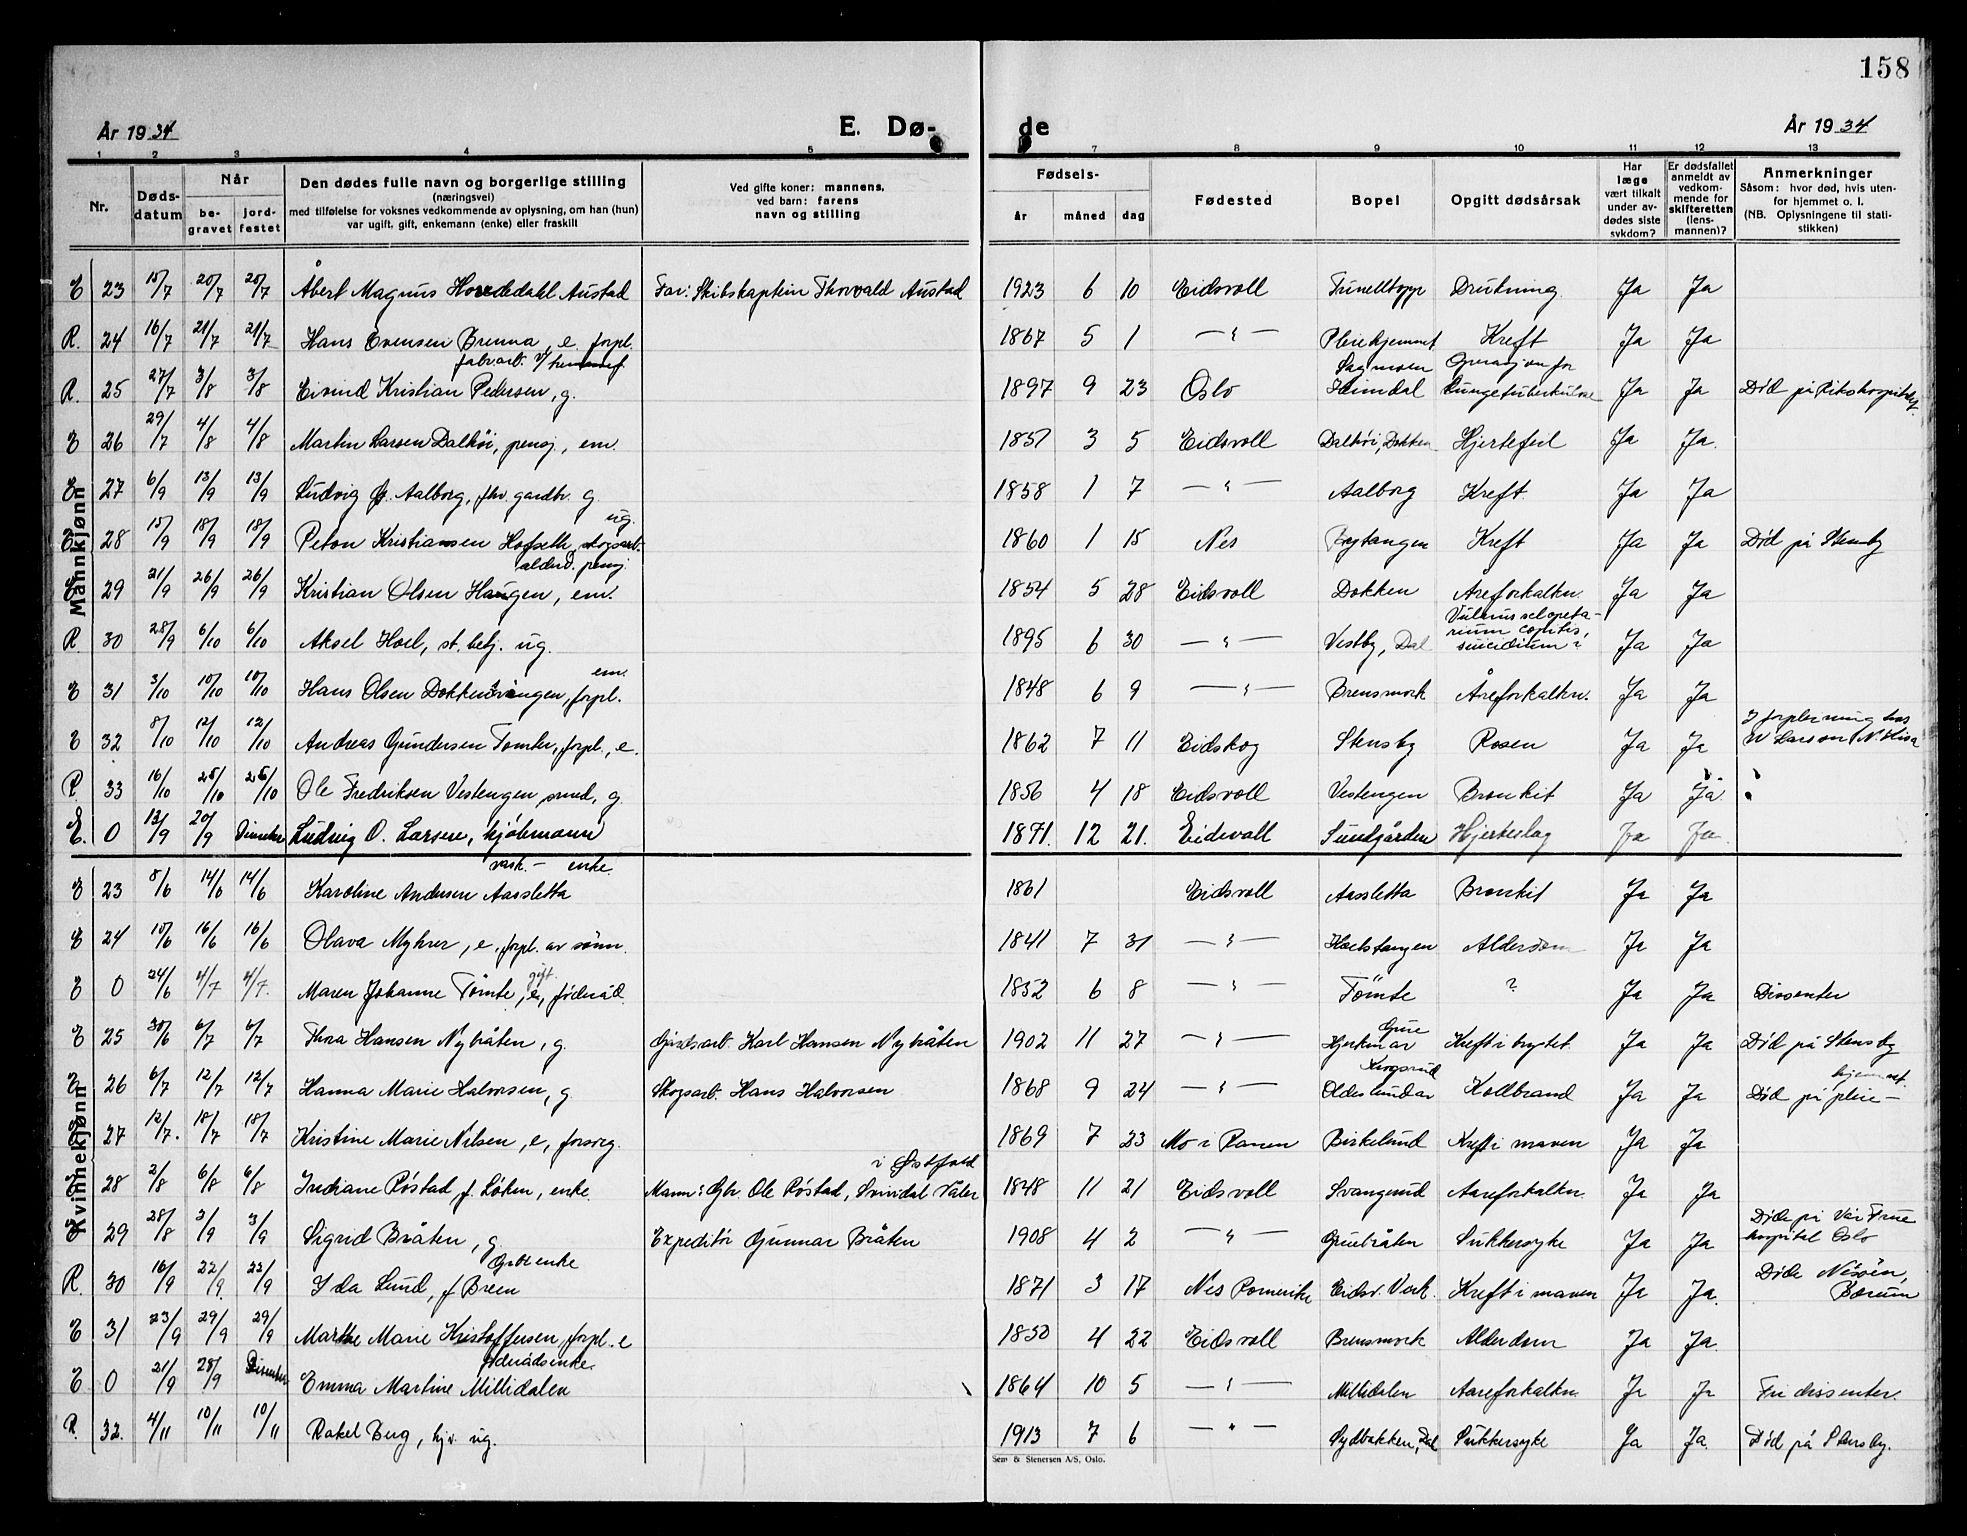 158
År 1934 E. Dø- de År 1934
1 2 3 4 5 7 8 9 10 11 12 13
Nr. Døds-datum Når be-gravet jord-festet Den dødes fulle navn og borgerlige stilling (næringsvei) med tilføielse for voksnes vedkommende av oplysning, om han (hun) var ugift, gift, enkemann (enke) eller fraskilt Ved gifte koner: mannens, ved barn: farens navn og stilling Fødsels- år måned dag Fødested Bopel Opgitt dødsårsak Har læge vært tilkalt under av-dødes siste sykdom? Er dødsfallet anmeldt av vedkom-mende for skifteretten (lens-mannen)? Anmerkninger Såsom: hvor død, hvis uten-for hjemmet o. l. (NB. Oplysningene til stati-stikken)
Mannkjønn
E 23 15/7 20/7 20/7 Åbert Magnus Austad Far: Skibskaptein Thorvald Austad 1923 6 10 Eidsvoll Drukning Ja Ja
R. 24 16/7 21/7 21/7 Hans Evensen Brenna, e. forpl. 1867 5 1 —"— Pleiehjemmet Kreft Ja Ja
R. 25 27/7 3/8 3/8 Eivind Kristian Pedersen, g. fabrarb. 1897 9 23 Oslo Sagmoen Heimdal Operasjon for Lungetuberkulose Ja Ja Død på Rikshospitalet
E 26 29/7 4/8 4/8 Martin Larsen Dalhøi, pensj., em. 1857 3 5 Eidsvoll Dalhøi, Dokken Hjertefeil Ja Ja.
E 27 6/9 13/9 13/9 Ludvig Aalborg, fhv. gardbr. g. 1858 1 7 —"— Aalborg Kreft. Ja Ja
E 28 15/9 18/9 18/9 Kristiansen Hofseth, skogsarb. ug. 1860 1 15 Nes Kreft Ja Ja Død på Stensby
E 29 21/9 26/9 26/9 Kristian Olsen Haugen, em. alderd. pensj. 1854 5 28 Eidsvoll Dokken Åreforkalkn. Ja Ja
R. 30 28/9 6/10 6/10 Aksel Hoel, st. betj. ug. 1895 6 30 —"— Vestby, Dal Vulnus sclopeta-rium capitis, suicidium? Ja Ja
E 31 3/10 10/10 10/10 Hans Olsen Dokkensvangen, forpl. em. 1848 6 9 —"— Brensmork Åreforkalkn. Ja Ja
E 32 8/10 12/10 12/10 Andreas Gundersen Tomter, forpl., e. 1862 7 11 Eidskog Stensby Rosen Ja Ja I forpleining hos W Larsen
R. 33 16/10 25/10 25/10 Ole Fredriksen Vestengen smed, g. 1856 4 18 Eidsvoll Vestengen Bronkit Ja Ja
E. 0 13/9 20/9 Dissenter Ludvig O. Larsen, kjøbmann 1871. 12 21. Eidsvoll Sundgården Hjerteslag Ja Ja.
Kvinnekjønn
E 23 8/6 14/6 14/6 Karoline Andersen Aassletta vask.- enke. 1861 Eidsvoll Aassletta Bronkit Ja Ja
E 24 10/6 16/6 16/6 Olava Myhrer, e. forpl. av sønn. 1841 7 31 —"— Alderdom Ja Ja
E 0 24/6 4/7 4/7. Maren Johanne Tømte, e, gift. føderåd. 1852 6 8 —"— Tømte ? Ja Ja Dissenter
E 25 30/6 6/7 6/7 Thora Hansen Nybråten, g. Gårdsarb. Karl Hansen Nybråten 1902 11 27 —"— Kreft i brystet Ja Ja Død på Stensby
E 26 6/7 12/7 12/7 Hanna Marie Halvorsen, g. Skogsarb. Hans Halvorsen 1868 9 24 —"— Kollbrand Ja Ja Død på pleie-hjemmet.
E 27 12/7. 18/7 18/7 Kristine Marie Nilsen, e, forsorg. 1869 7 23 Mo i Ranen Birkelund Kreft i maven Ja Ja
E 28 2/8 6/8 6/8 Indiane Røstad, f. Løken, enke. Mann: Gbr. Ole Røstad, Svinndal Våler i Østfold 1848 11 21 Eidsvoll Svangsrud Aareforkalkn. Ja Ja
E 29 28/8 3/9 3/9 Sigrid Bråten, g. Expeditør Gunnar Bråten 1908 4 2 —"— Gruebråten Sukkersyke Ja Ja Døde på Vår Frue hospital Oslo
R. 30 16/9 22/9. 22/9 Ida Lund, f Breen Gbr. enke 1871 3 17 Nes Romerike Eidsv. Verk. Kreft i maven Ja Ja. Døde Bærum
E 31 23/9 29/9 29/9 Marthe Marie Kristoffersen, forpl. e 1850 4 22 Eidsvoll Brensmork Alderdom Ja Ja
E 0 21/9 28/9 Dissenter Emma Martine Millidalen føderådsenke. 1864 10 5 —"— Millidalen Aareforkalkn. Ja Ja Fri dissenter.
R. 32. 4/11 10/11 10/11 Rakel Berg, hjv. ug. 1913 7 6 —"— Sydbakken, Dal Sukkersyke Ja Ja. Død på Stensby.
Sem & Stenersen A/S, Oslo.